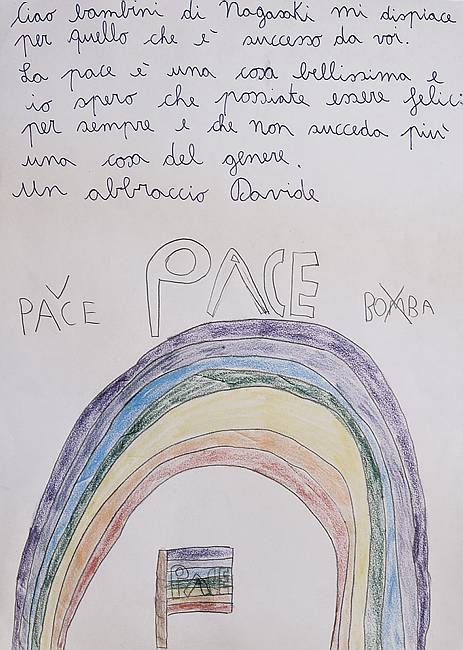 Ciao bambini di Nagasaki mi dispiace
per quello che è successo da voi.
La pace è una cosa bellissima e
io spero che possiate essere felici
per sempre e che non succeda più
una cosa del genere.
Un abbraccio Davide
PACE
PACE
BOMBA
PACE